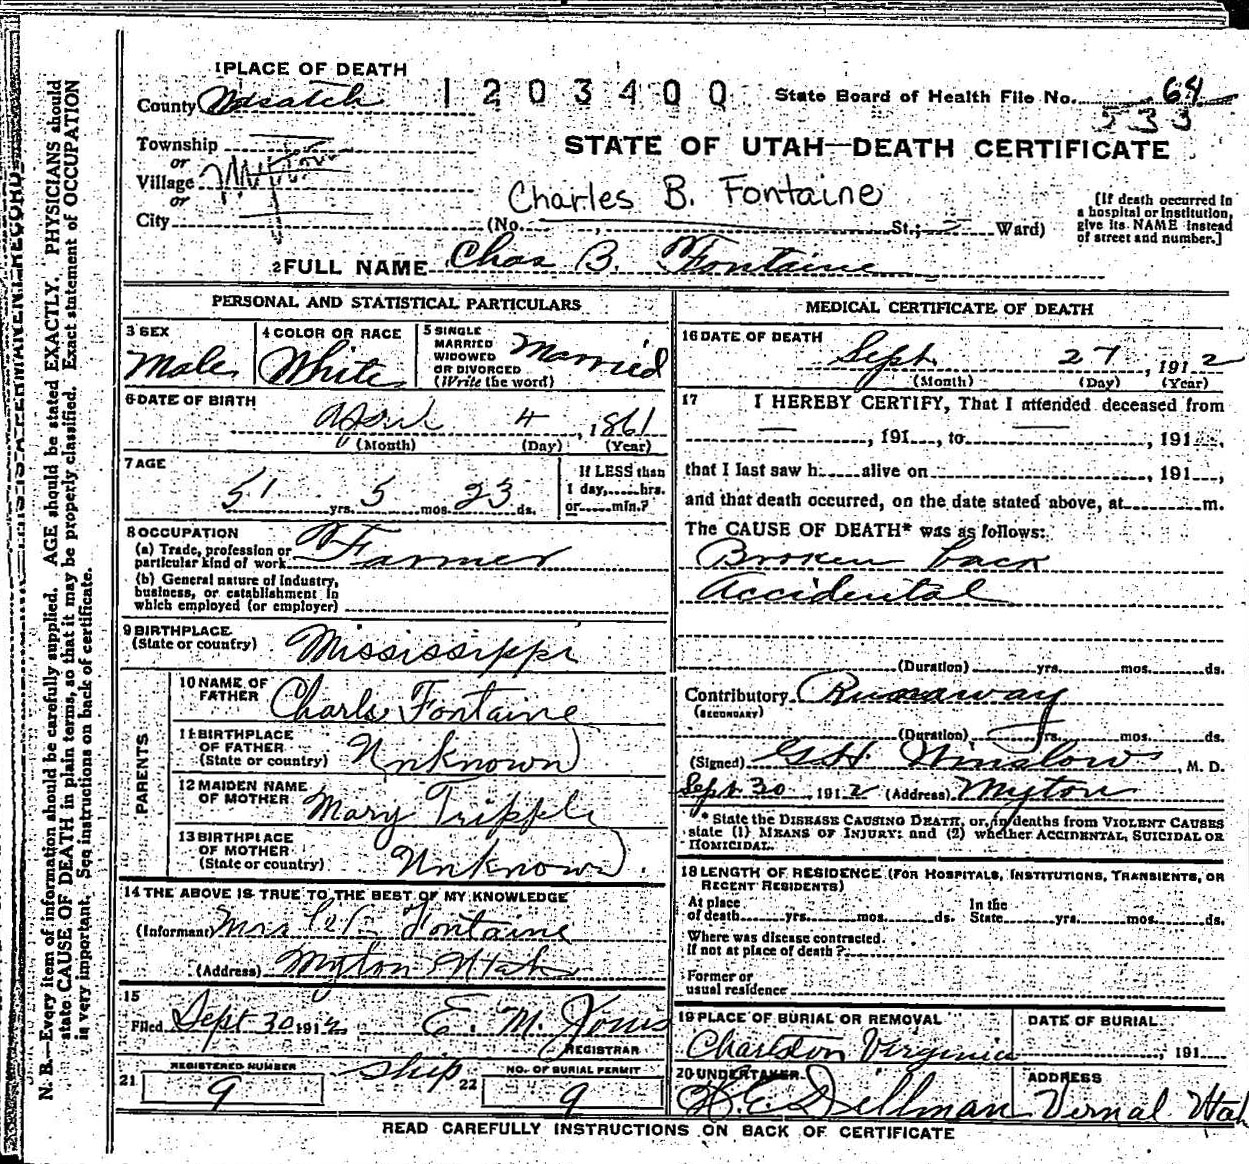 1 PLACE OF DEATH
1203400
State Board of Health File No. 64
533
County Wasatch
STATE OF UTAH—DEATH CERTIFICATE
Township
or
Village Myton
or
City
Charles B. Fontaine
(No. St.; Ward)
[If death occurred in a hospital or institution, give its NAME instead of street and number.]
2 FULL NAME Chas B. Fontaine
PERSONAL AND STATISTICAL PARTICULARS
3 SEX
Male
4 COLOR OR RACE
White
5 SINGLE
MARRIED
WIDOWED
OR DIVORCED
(Write the word)
Married
6 DATE OF BIRTH
April 4, 1861
(Month) (Day) (Year)
7 AGE
51 yrs. 5 mos. 23 ds.
If LESS than
1 day, hrs.
or min.?
8 OCCUPATION
(a) Trade, profession or
particular kind of work Farmer
(b) General nature of Industry,
business, or establishment in
which employed (or employer)
9 BIRTHPLACE
(State or country) Mississippi
PARENTS
10 NAME OF
FATHER Charls Fontaine
11 BIRTHPLACE
OF FATHER
(State or country) Unknown
12 MAIDEN NAME
OF MOTHER Mary Tripple
13 BIRTHPLACE
OF MOTHER
(State or country) Unknown
14 THE ABOVE IS TRUE TO THE BEST OF MY KNOWLEDGE
(Informant) Mrs Fontaine
(Address) Myton Utah
15
Filed Sept 30 1912 E. M. Jones
REGISTRAR
21 REGISTERED NUMBER
9
ship
22 NO. OF BURIAL PERMIT
9
MEDICAL CERTIFICATE OF DEATH
16 DATE OF DEATH
Sept 27, 1912
(Month) (Day) (Year)
17 I HEREBY CERTIFY, That I attended deceased from
, 191 , to , 191 ,
that I last saw h alive on , 191 ,
and that death occurred, on the date stated above, at m.
The CAUSE OF DEATH* was as follows:
Broken back
Accidental
(Duration) yrs. mos. ds.
Contributory Runaway
(SECONDARY)
(Duration) yrs. mos. ds.
(Signed) G H Winslow, M. D.
Sept 30, 1912 (Address) Myton
* State the DISEASE CAUSING DEATH, or, in deaths from VIOLENT CAUSES
state (1) MEANS OF INJURY; and (2) whether ACCIDENTAL, SUICIDAL OR
HOMICIDAL.
18 LENGTH OF RESIDENCE (FOR HOSPITALS, INSTITUTIONS, TRANSIENTS, OR
RECENT RESIDENTS)
At place
of death yrs. mos. ds.
In the
State yrs. mos. ds.
Where was disease contracted.
If not at place of death?
Former or
usual residence
19 PLACE OF BURIAL OR REMOVAL
Charlston Virginia
DATE OF BURIAL
, 191
20 UNDERTAKER
H. E. Dillman
ADDRESS
Vernal Utah
READ CAREFULLY INSTRUCTIONS ON BACK OF CERTIFICATE
N. B.—Every item of information should be carefully supplied. AGE should be stated EXACTLY. PHYSICIANS should
state CAUSE OF DEATH in plain terms, so that it may be properly classified. Exact statement of OCCUPATION
is very important. See instructions on back of certificate.